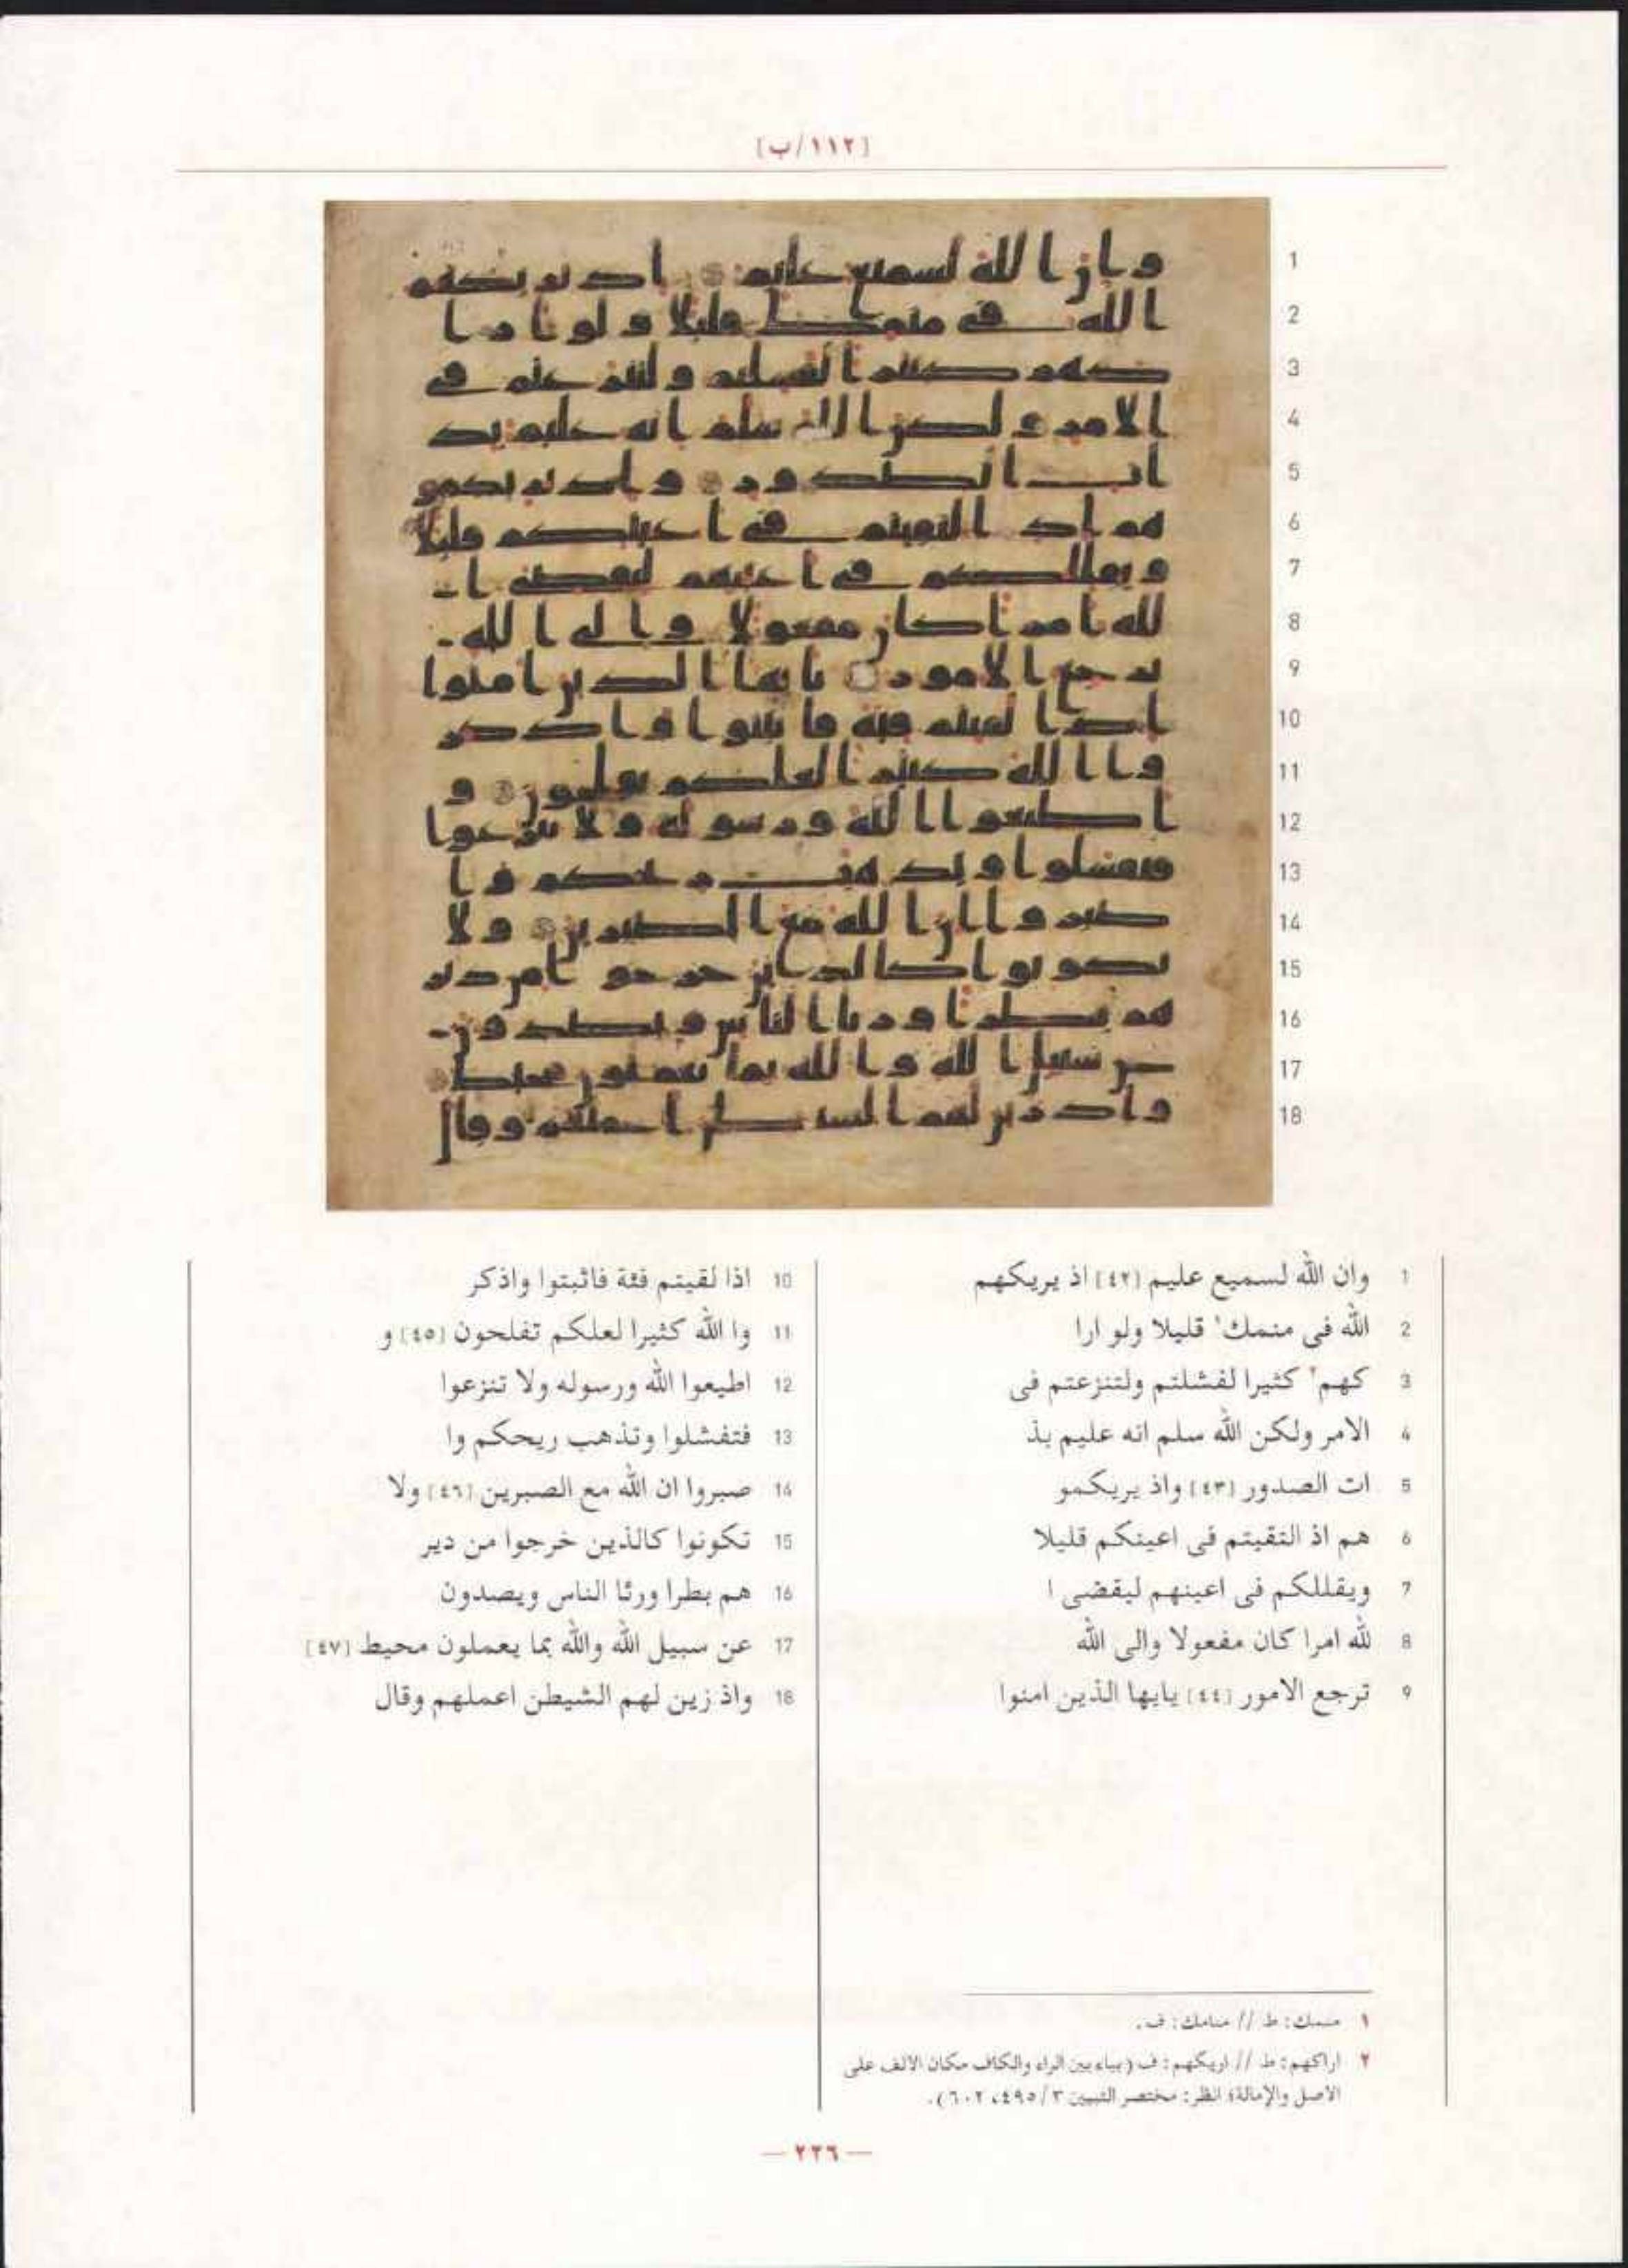 [١١٢/ب]
1 وان الله لسميع عليم [٤٢] اذ يريكهم
2 الله فى منمك١ قليلا ولو ارا
3 كهم٢ كثيرا لفشلتم ولتنزعتم فى
4 الامر ولكن الله سلم انه عليم بذ
5 ات الصدور [٤٣] واذ يريكمو
6 هم اذ التقيتم فى اعينكم قليلا
7 ويقللكم فى اعينهم ليقضى ا
8 لله امرا كان مفعولا والى الله
9 ترجع الامور [٤٤] يايها الذين امنوا
10 اذا لقيتم فئة فاثبتوا واذكر
11 وا الله كثيرا لعلكم تفلحون [٤٥] و
12 اطيعوا الله ورسوله ولا تنزعوا
13 فتفشلوا وتذهب ريحكم وا
14 صبروا ان الله مع الصبرين [٤٦] ولا
15 تكونوا كالذين خرجوا من دير
16 هم بطرا ورئا الناس ويصدون
17 عن سبيل الله والله بما يعملون محيط [٤٧]
18 واذ زين لهم الشيطن اعملهم وقال
١ منمك: ط // منامك: ف.
٢ اراكهم: ط // اريكهم: ف (بياء بين الراء والكاف مكان الالف على
الاصل والإمالة؛ انظر: مختصر التبيين ٣/٤٩٥، ٦٠٢).
— ٢٢٦ —